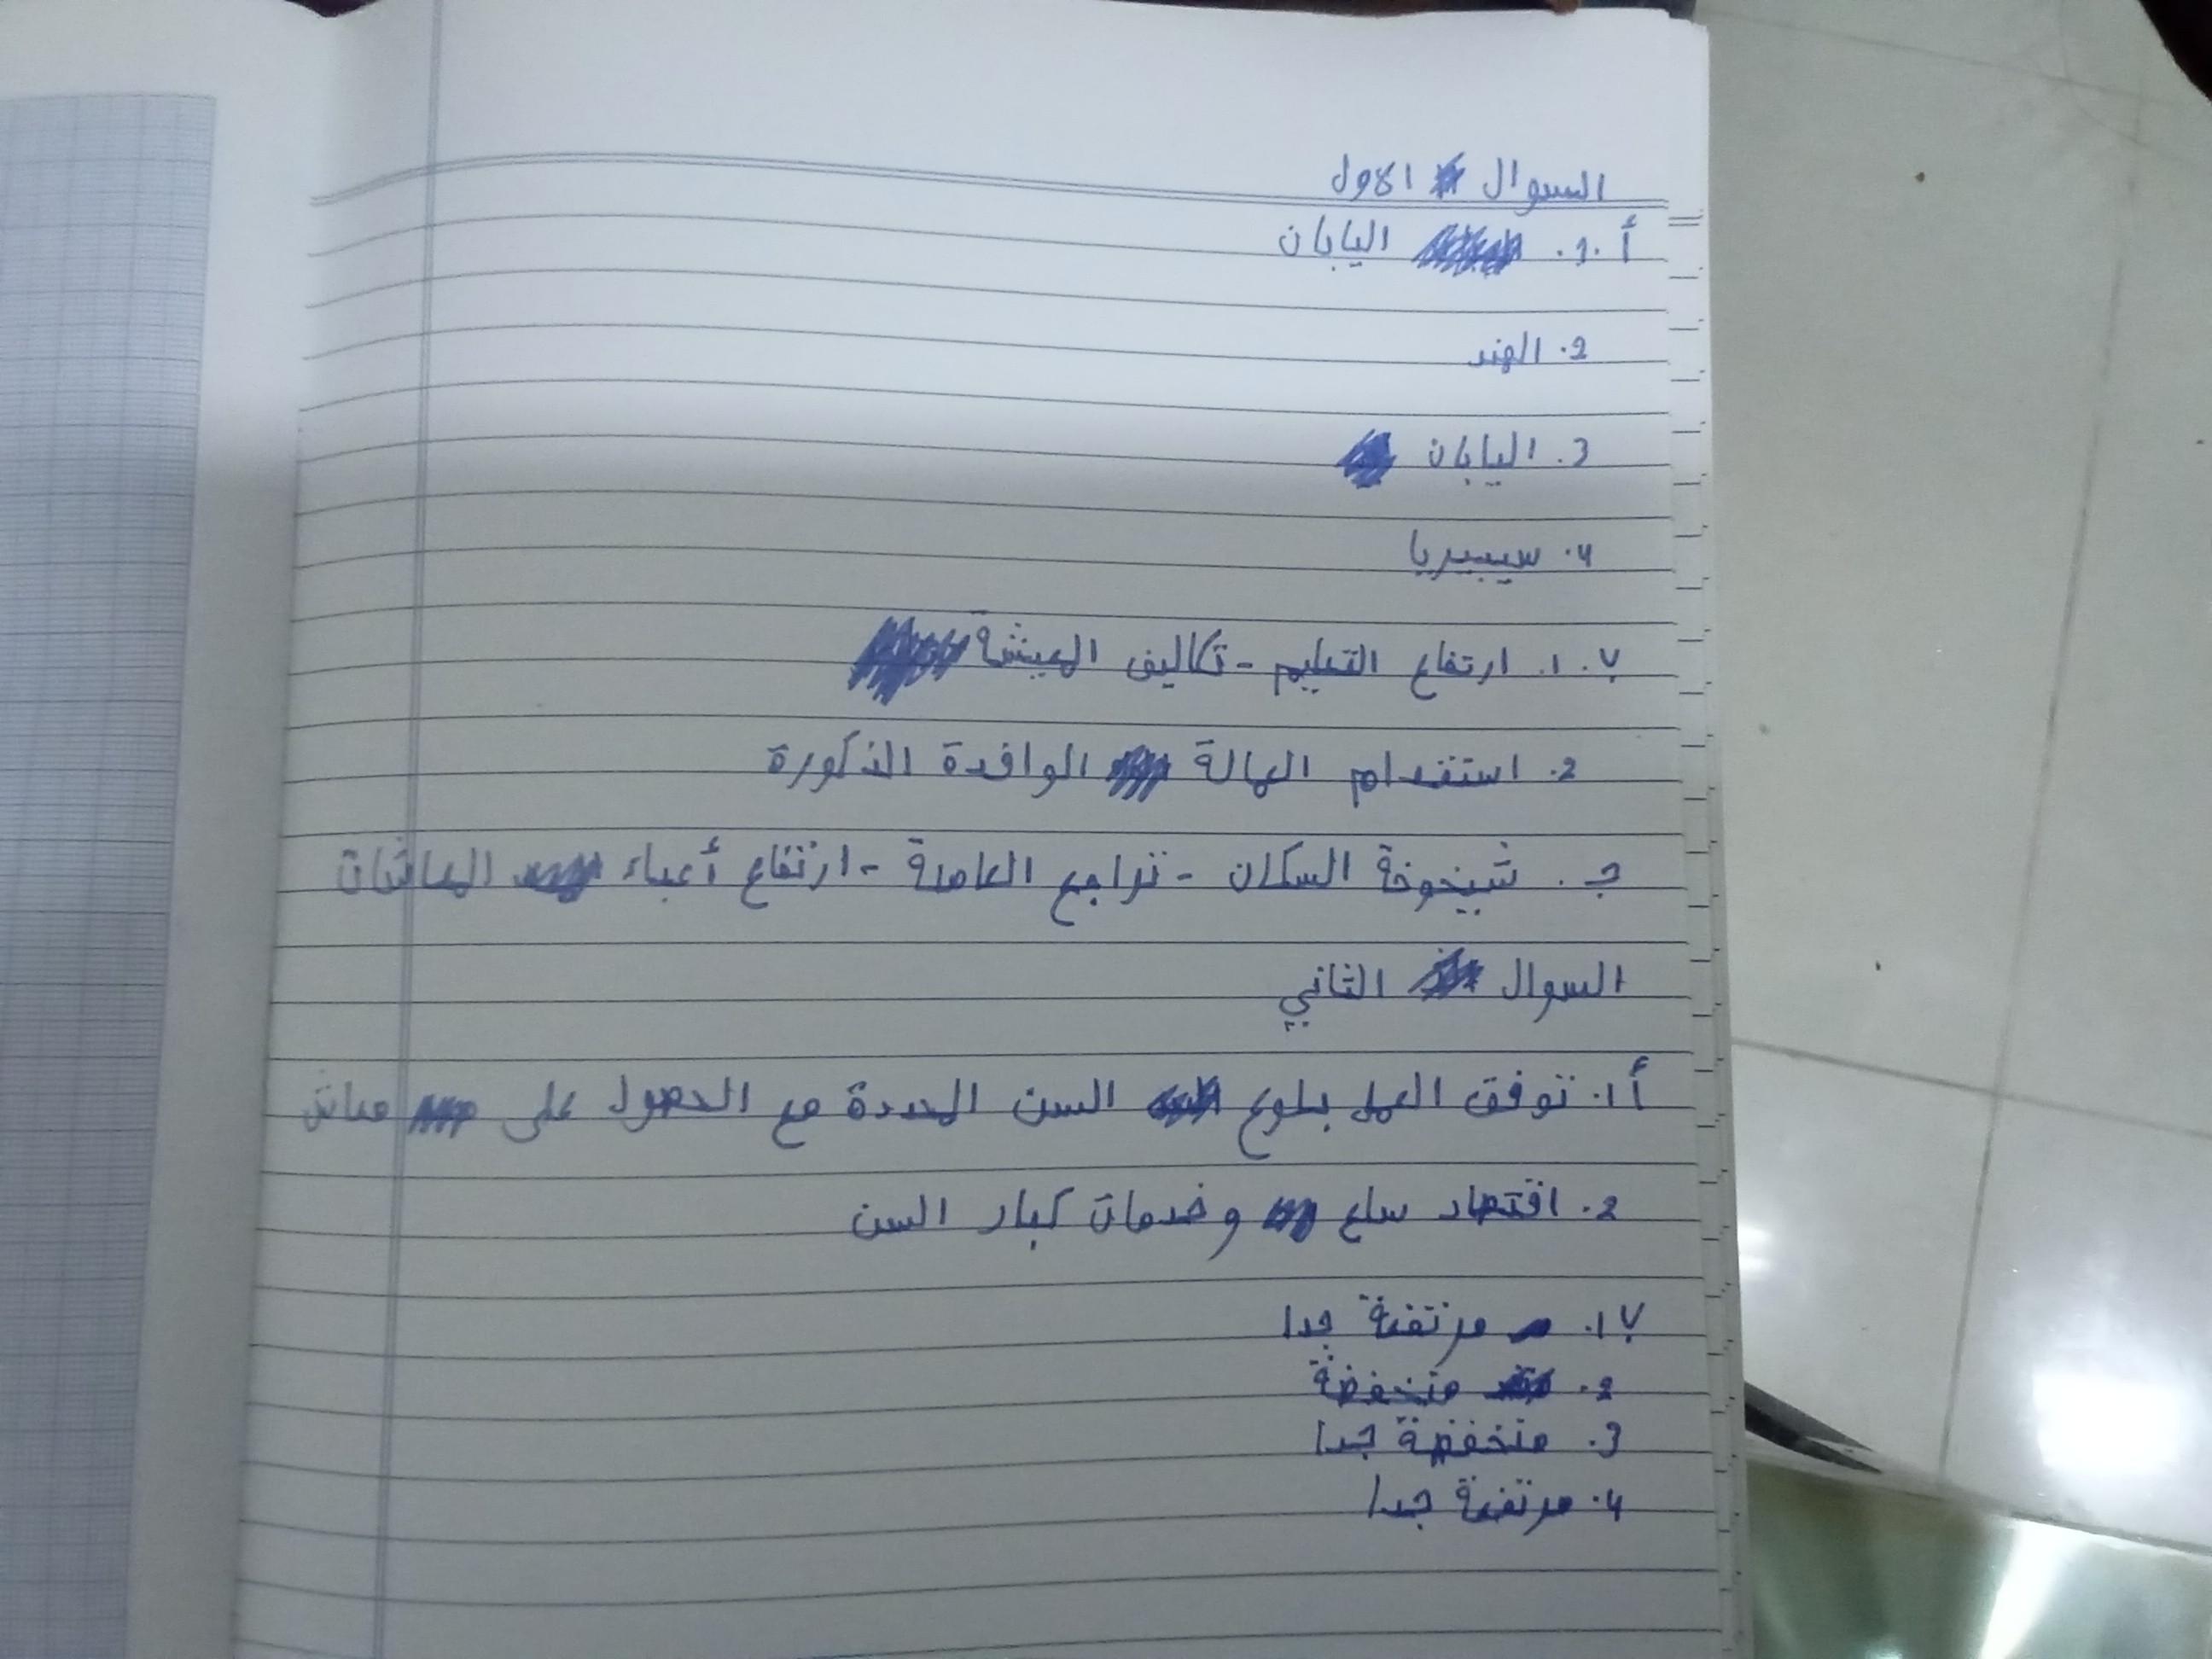 السوال الاول
أ .1. اليابان
2. الهند
3. اليابان
4. سيبيريا
ب .1. ارتفاع التعليم - تكاليف المعيشة
2. استقدام العمالة الوافدة الذكورة
ج . شيخوخة السكان - تراجع العاملة - ارتفاع أعباء المعاشات
السوال الثاني
أ 1. توقف العمل بلوغ السن المحددة مع الحصول على معاش
2. اقتصاد سلع وخدمات كبار السن
ب 1. مرتفعة جدا
2. منخفضة
3. منخفضة جدا
4. مرتفعة جدا